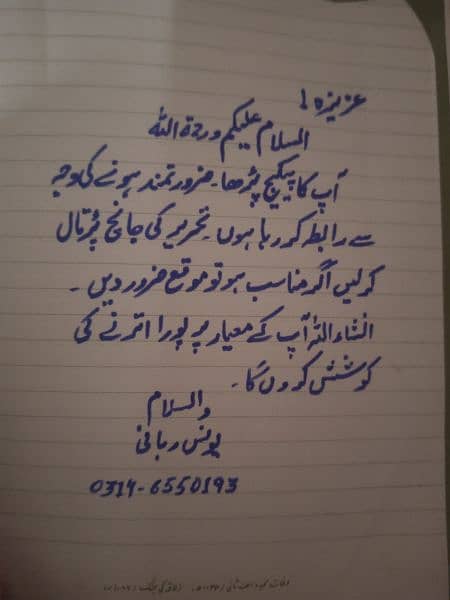 عزیزہ!
السلام علیکم ورحمۃ اللہ
آپ کا پیکیج پڑھا۔ ضرورتمند ہونے کی وجہ
سے رابطہ کر رہا ہوں۔ تحریر کی جانچ پڑتال
کر لیں اگر مناسب ہو تو موقع ضرور دیں۔
انشاءاللہ آپ کے معیار پر پورا اترنے کی
کوشش کروں گا۔
والسلام
یونس ربانی
0314-6550193